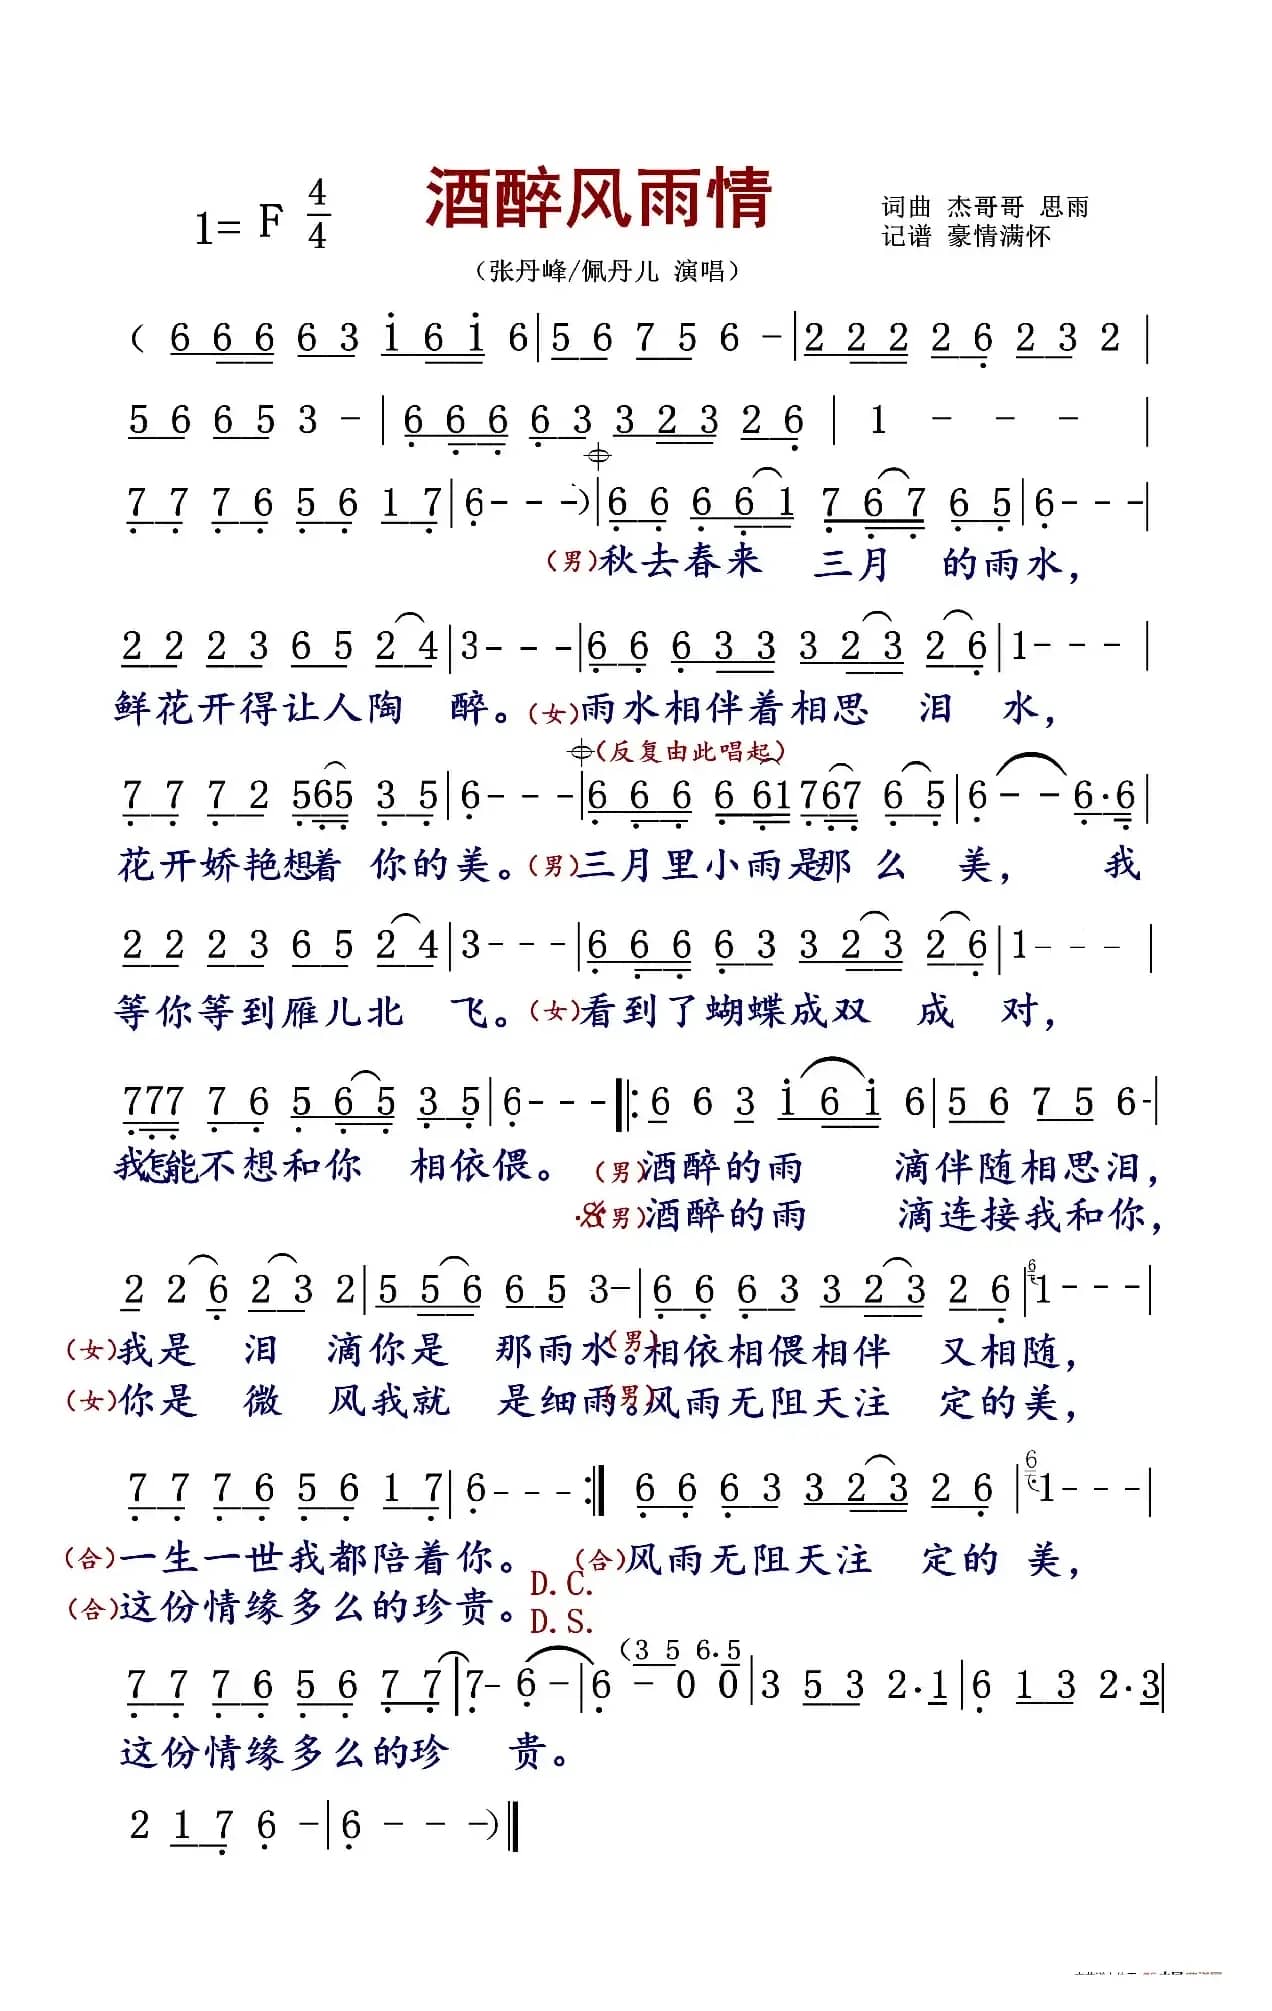 酒醉风雨情
1= F 4/4
词曲 杰哥哥 思雨
记谱 豪情满怀
（张丹峰/佩丹儿 演唱）
( 6 6 6 6 3 i 6 i 6 | 5 6 7 5 6 - | 2 2 2 2 6 2 3 2 |
5 6 6 5 3 - | 6 6 6 6 3 3 2 3 2 6 | 1 - - - |
7 7 7 6 5 6 1 7 | 6 - - - ) | 6 6 6 6 1 7 6 7 6 5 | 6 - - - |
（男）秋去春来 三月 的雨水，
2 2 2 3 6 5 2 4 | 3 - - - | 6 6 6 3 3 3 2 3 2 6 | 1 - - - |
鲜花开得让人陶 醉。（女）雨水相伴着相思 泪 水，
（反复由此唱起）
7 7 7 2 5 6 5 3 5 | 6 - - - | 6 6 6 6 6 1 7 6 7 6 5 | 6 - - 6 · 6 |
花开娇艳想着 你的美。（男）三月里小雨是那 么 美， 我
2 2 2 3 6 5 2 4 | 3 - - - | 6 6 6 6 3 3 2 3 2 6 | 1 - - - |
等你等到雁儿北 飞。（女）看到了蝴蝶成双 成 对，
7 7 7 7 6 5 6 5 3 5 | 6 - - - ‖: 6 6 3 i 6 i 6 | 5 6 7 5 6 - |
我怎能不想和你 相依偎。（男）酒醉的雨 滴伴随相思泪，
（男）酒醉的雨 滴连接我和你，
2 2 6 2 3 2 | 5 5 6 6 5 3 - | 6 6 6 3 3 2 3 2 6 | 6 1 - - - |
（女）我是 泪 滴你是 那雨水。（男）相依相偎相伴 又相随，
（女）你是 微 风我就 是细雨。（男）风雨无阻天注 定的美，
7 7 7 6 5 6 1 7 | 6 - - - :‖ 6 6 6 3 3 2 3 2 6 | 6 1 - - - |
（合）一生一世我都陪着你。（合）风雨无阻天注 定的 美，
D.C.
（合）这份情缘多么的珍贵。
D.S.
(3 5 6·5
7 7 7 6 5 6 7 7 | 7 - 6 - | 6 - 0 0 | 3 5 3 2·1 | 6 1 3 2·3 |
这份情缘多么的珍 贵。
2 1 7 6 - | 6 - - - ) ‖